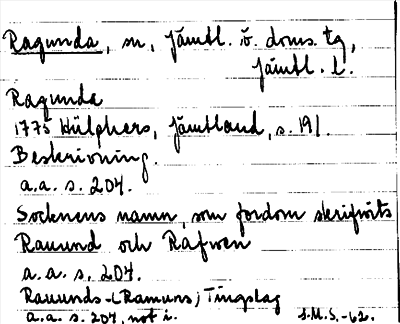 Ragunda, sn, Jämtl. ö. doms. tg,
Jämtl. l.
Ragunda
1775 Hülphers, Jämtland, s. 191.
Beskrivning.
a.a. s. 204.
Socknens namn, som fordom skrifwits
Rauund och Rafwen
a.a. s. 204.
Rauunds- (Ramuns) Tingslag
a.a. s. 204, not i. S.M.S.-62.